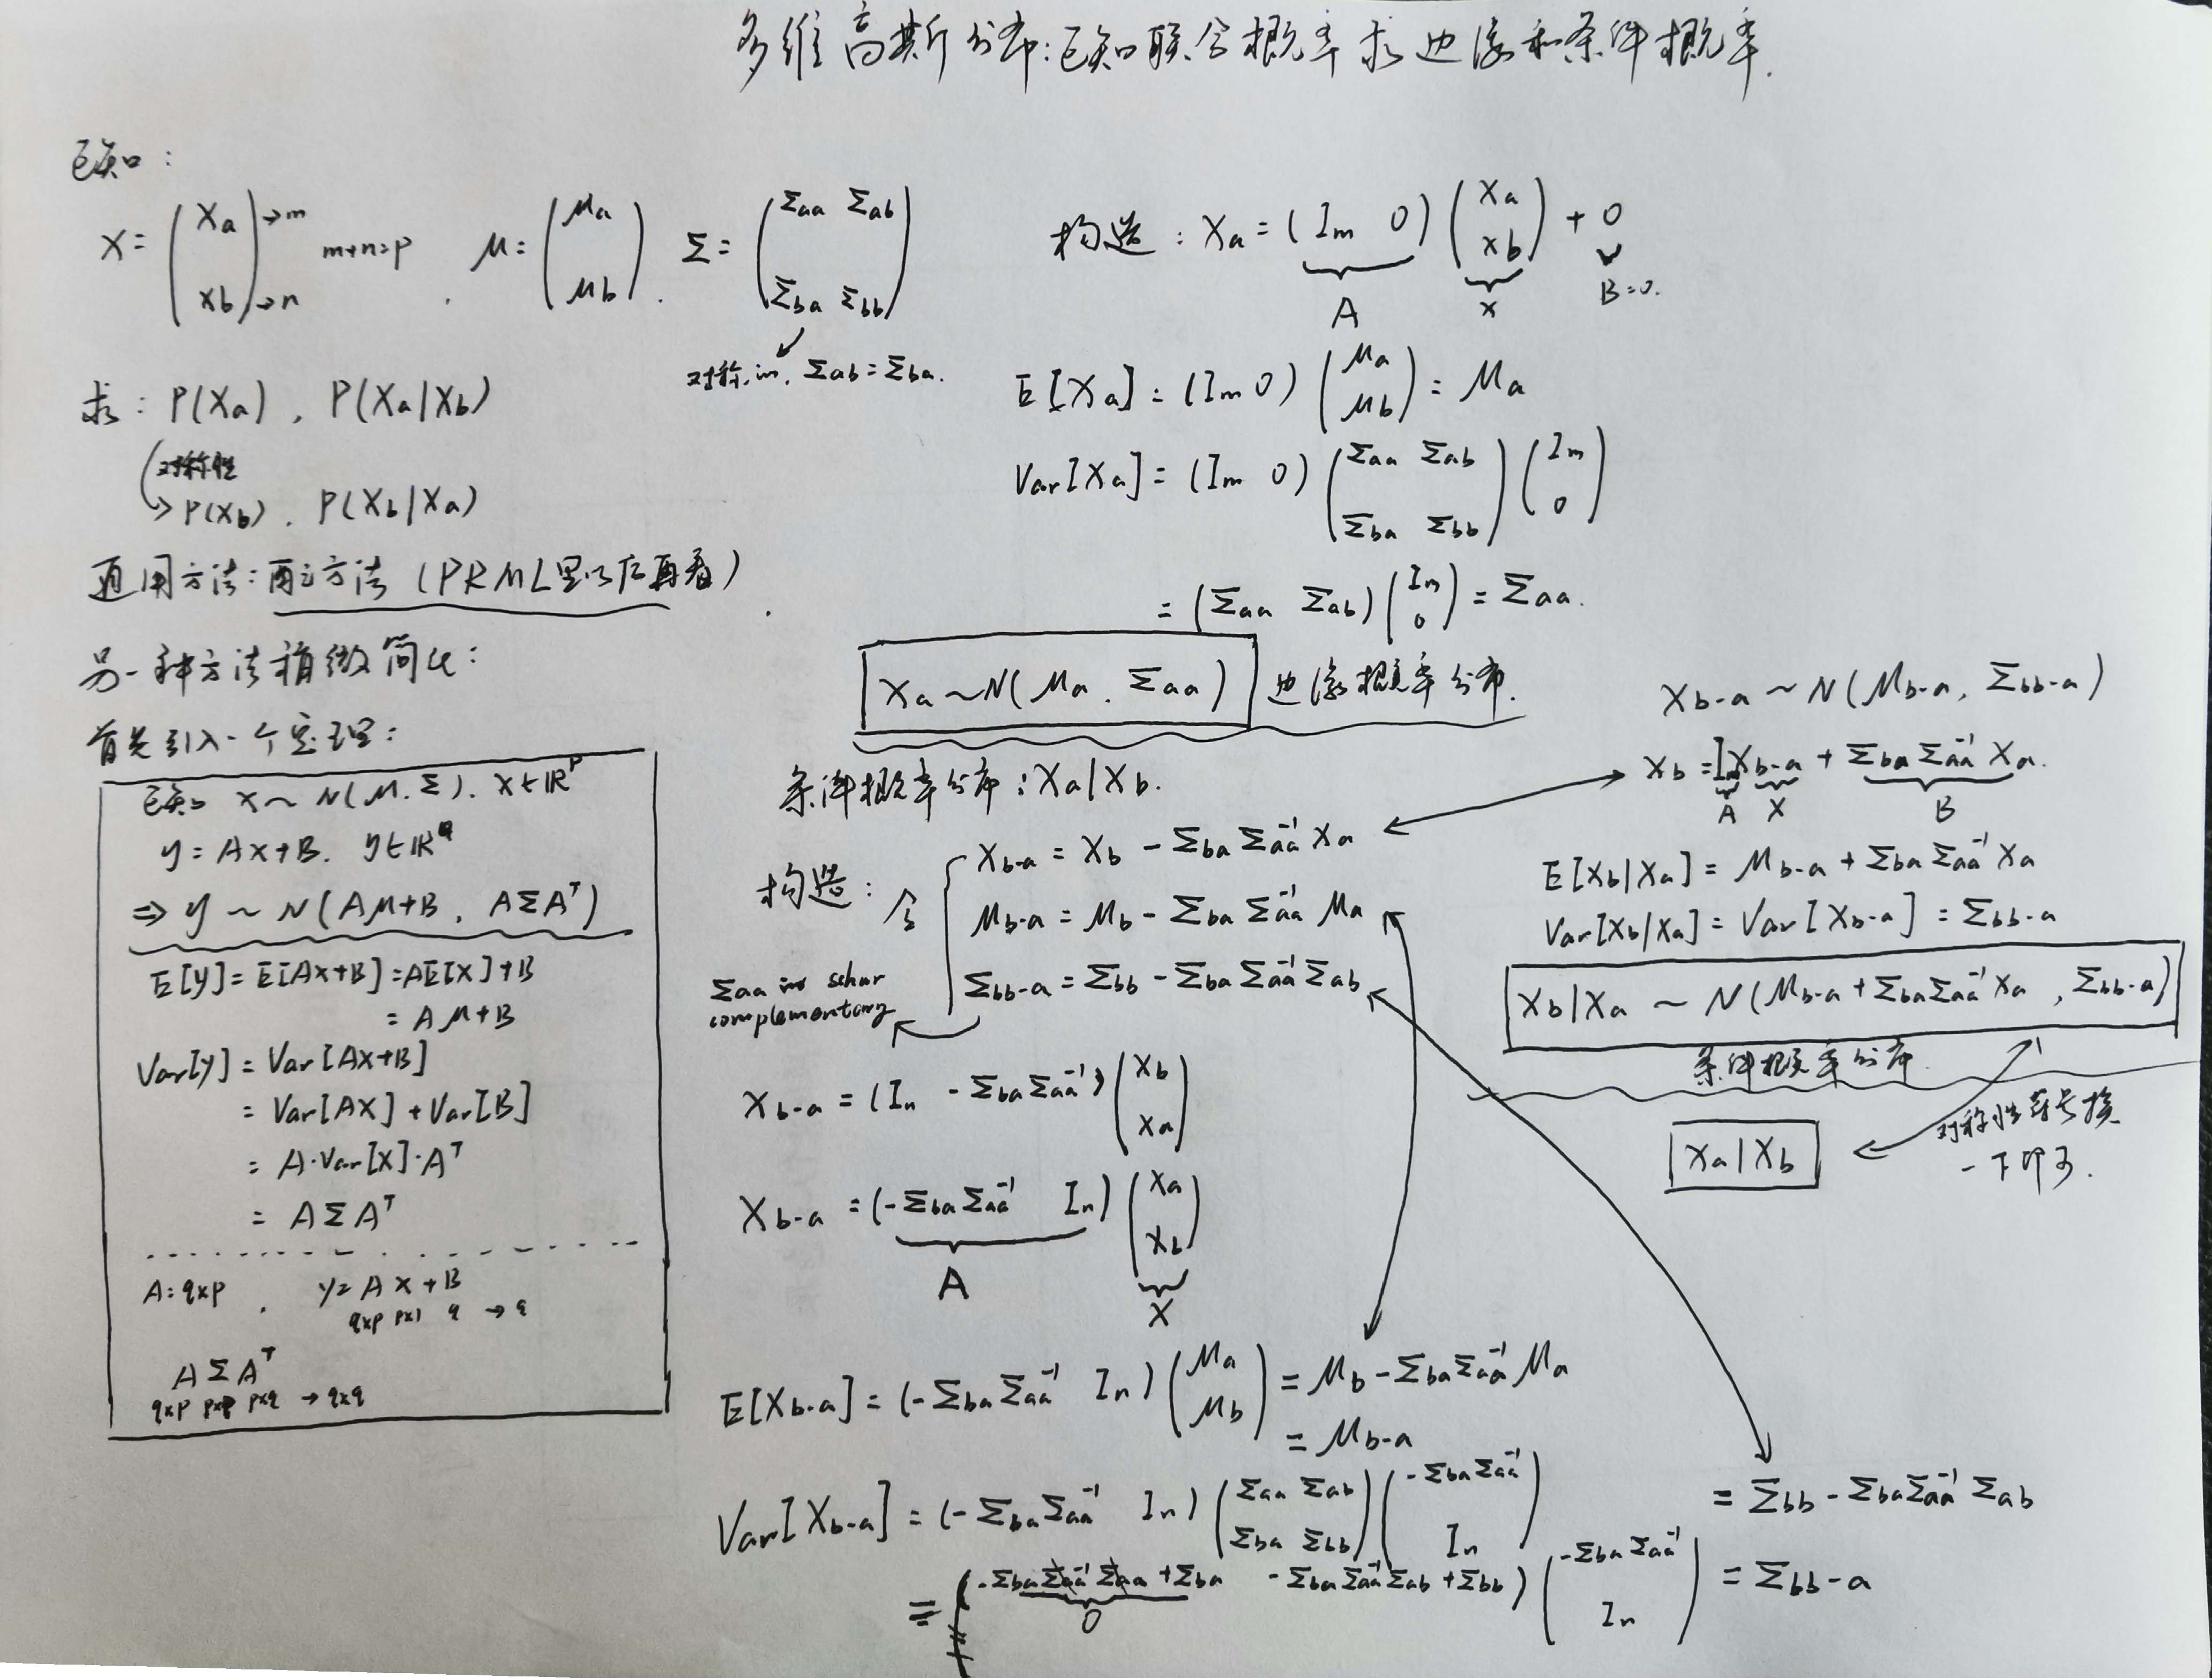 多维高斯分布:已知联合概率求边缘和条件概率.
已知:
X = (Xa →m
xb →n) m+n=p , μ = (μa
μb) . Σ = (Σaa Σab
Σba Σbb)
对称in, Σab = Σba.
求: P(Xa) , P(Xa|Xb)
对称性
→ P(Xb) , P(Xb|Xa)
通用方法: 配方法 (PRML里以后再看)
另一种方法稍微简化:
首先引入一个定理:
已知 X ~ N(μ, Σ). X∈ℝᵖ
y = Ax+B. y∈ℝ^q
⇒ y ~ N(Aμ+B , AΣAᵀ)
E[y] = E[Ax+B] = AE[X]+B
= Aμ+B
Var[y] = Var[Ax+B]
= Var[AX] + Var[B]
= A·Var[X]·Aᵀ
= AΣAᵀ
A: q×p , y = A x + B
q×p p×1 q → q
AΣAᵀ
q×p p×p p×q → q×q
构造: Xa = (Im 0) (Xa
xb) + 0
A x B=0.
E[Xa] = (Im 0) (μa
μb) = μa
Var[Xa] = (Im 0) (Σaa Σab
Σba Σbb) (Im
0)
= (Σaa Σab) (Im
0) = Σaa.
Xa ~ N(μa . Σaa) 边缘概率分布.
条件概率分布: Xa|Xb.
构造: 令 Xb-a = Xb - Σba Σaa⁻¹ Xa
μb-a = μb - Σba Σaa⁻¹ μa
Σbb-a = Σbb - Σba Σaa⁻¹ Σab
Σaa in schur
complementary
Xb-a = (In - Σba Σaa⁻¹) (Xb
Xa)
Xb-a = (-Σba Σaa⁻¹ In) (Xa
Xb)
A X
E[Xb-a] = (-Σba Σaa⁻¹ In) (μa
μb) = μb - Σba Σaa⁻¹ μa
= μb-a
Var[Xb-a] = (-Σba Σaa⁻¹ In) (Σaa Σab
Σba Σbb) (-Σba Σaa⁻¹
In) = Σbb - Σba Σaa⁻¹ Σab
= (-Σba Σaa⁻¹ Σaa + Σba - Σba Σaa⁻¹ Σab + Σbb) (-Σba Σaa⁻¹
In) = Σbb-a
0
Xb-a ~ N(μb-a, Σbb-a)
Xb = In Xb-a + Σba Σaa⁻¹ Xa.
A X B
E[Xb|Xa] = μb-a + Σba Σaa⁻¹ Xa
Var[Xb|Xa] = Var[Xb-a] = Σbb-a
Xb|Xa ~ N(μb-a + Σba Σaa⁻¹ Xa , Σbb-a)
条件概率分布.
Xa|Xb
对称性符号换
一下即可.